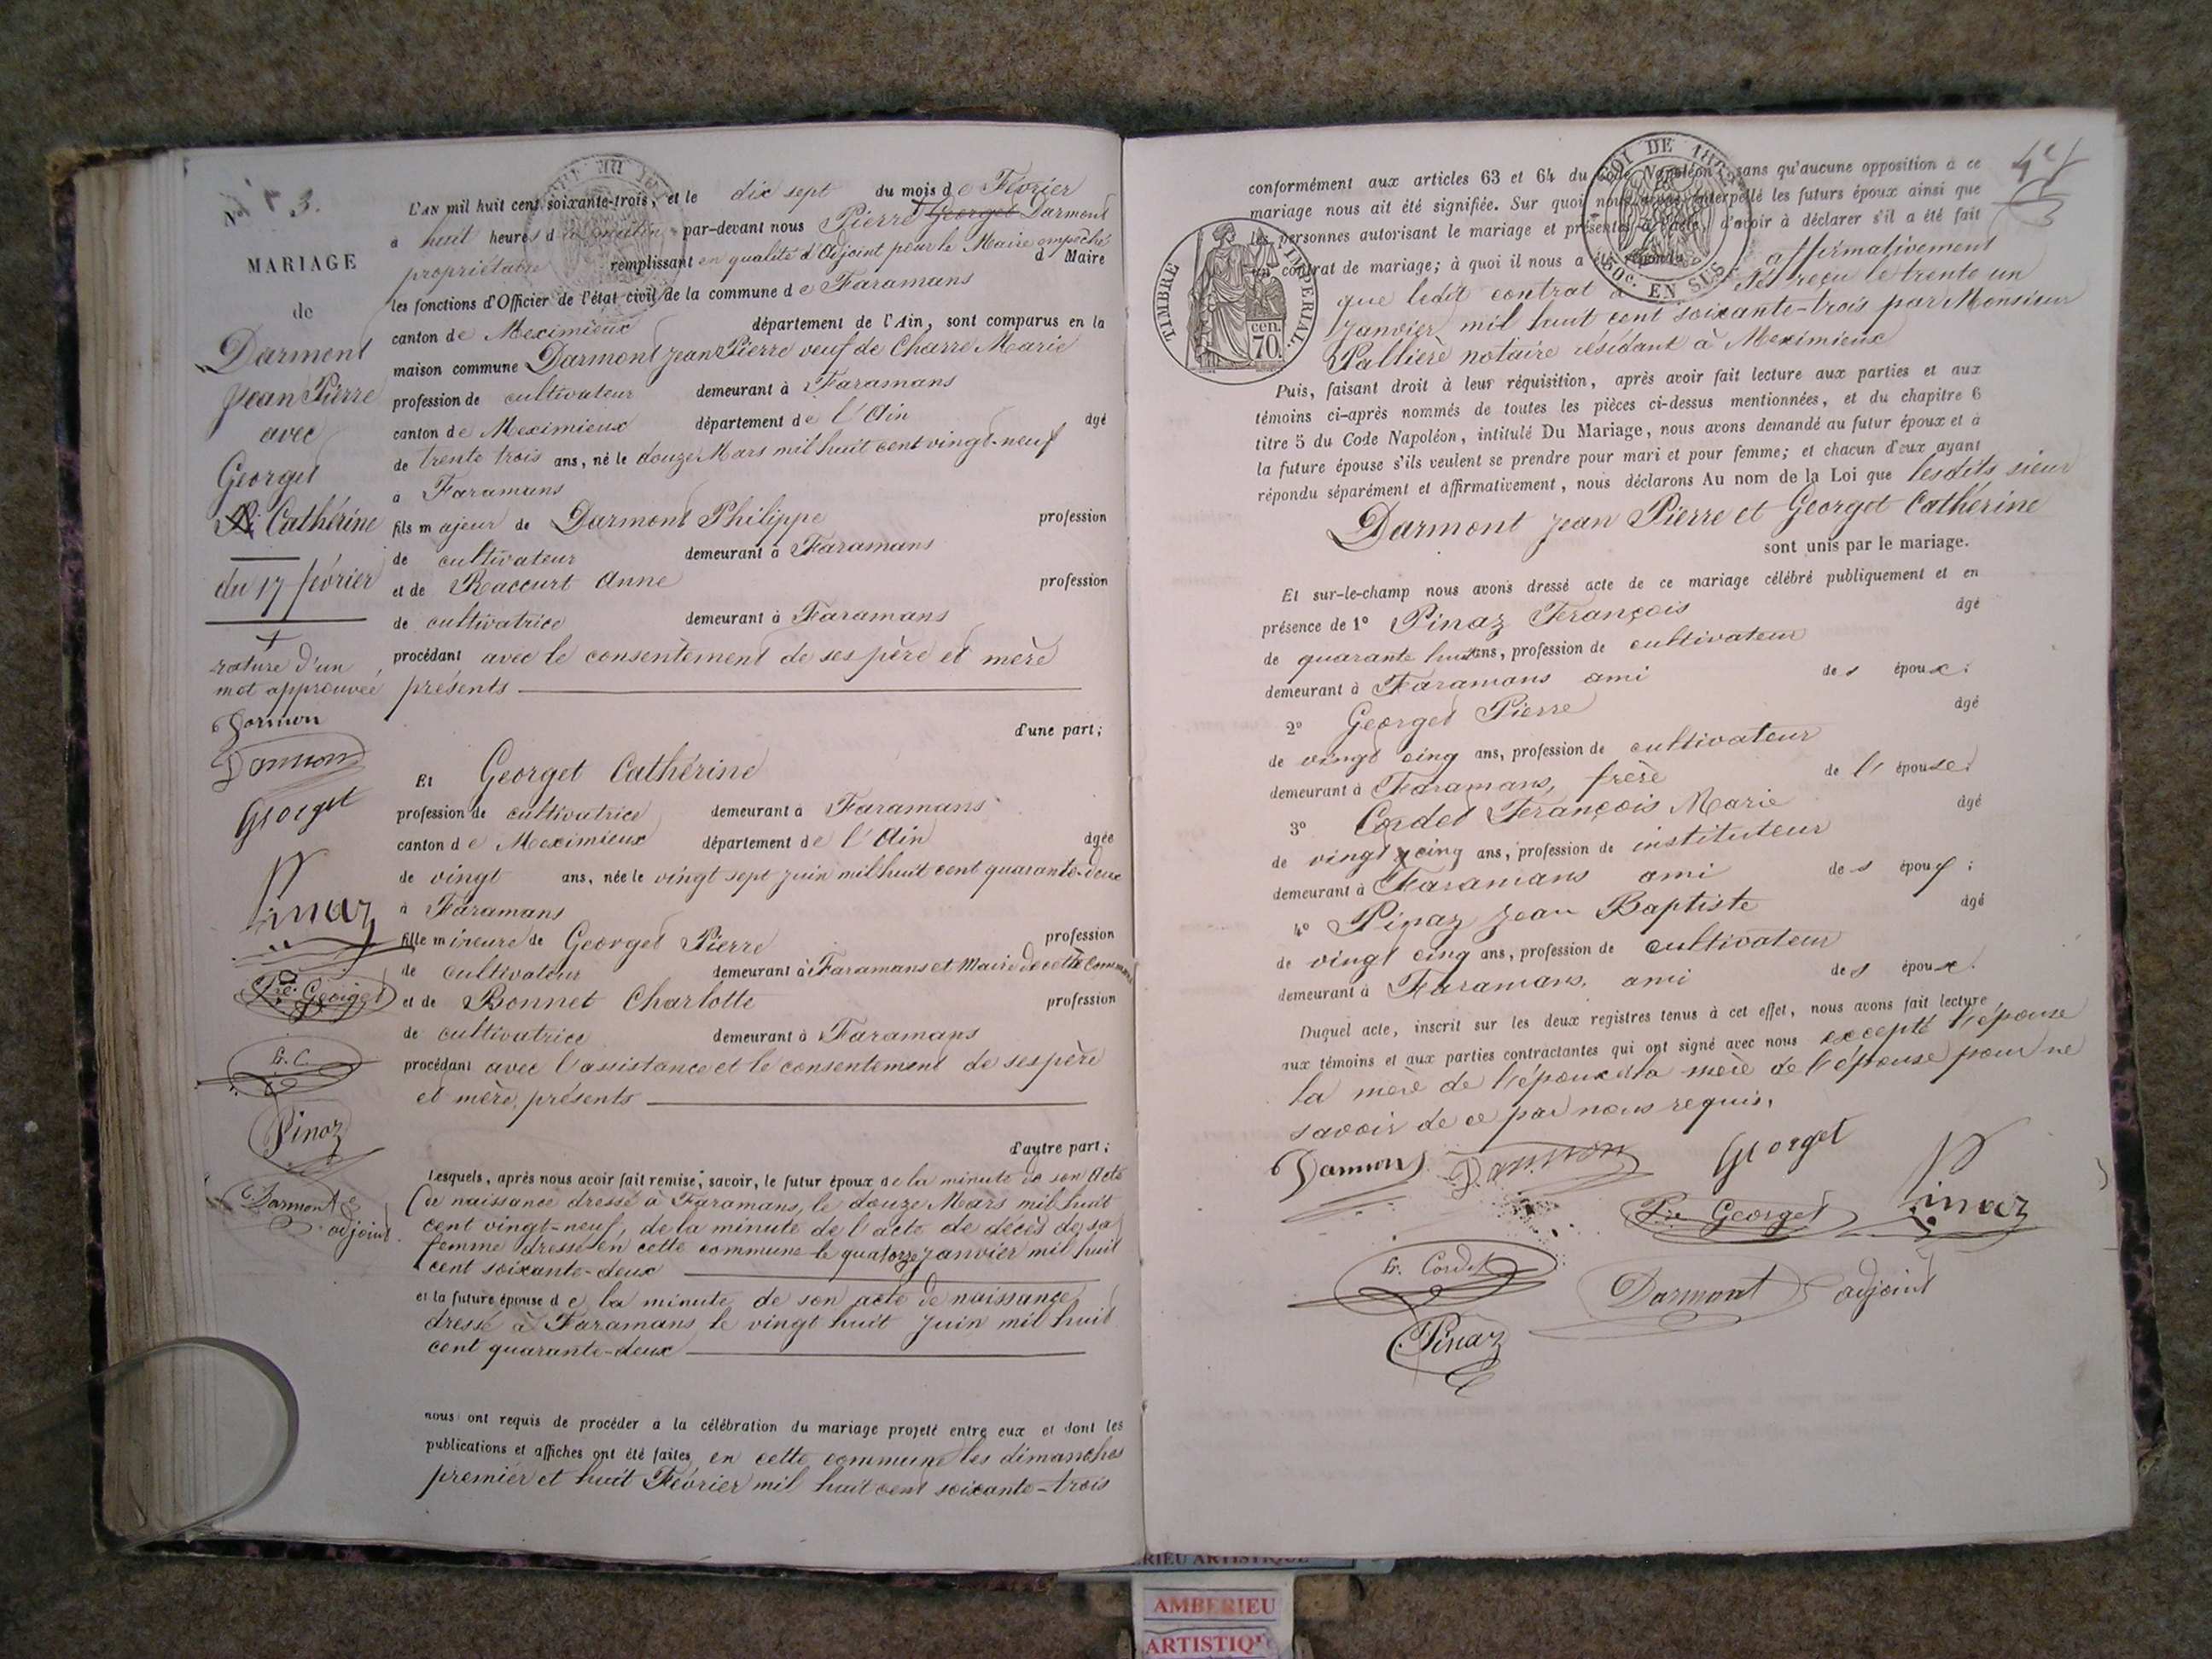 N° 3.
MARIAGE
de
Darmont
Jean Pierre
avec
Georget
Cathérine
du 17 février
rature d'un
mot approuvée
Darmon
Darmon
Georget
Pinaz
Pre Georget
G. C.
Pinaz
Darmont
adjoint.
L'AN mil huit cent soixante-trois, et le dix sept du mois de Février
à huit heures du matin par-devant nous Pierre Georget Darmont
propriétaire remplissant en qualité d'Adjoint pour le Maire empêché d Maire
les fonctions d'Officier de l'état civil de la commune de Faramans
canton de Meximieux département de l'Ain, sont comparus en la
maison commune Darmont Jean Pierre veuf de Charre Marie
profession de cultivateur demeurant à Faramans
canton de Meximieux département de l'Ain âgé
de trente trois ans, né le douze Mars mil huit cent vingt-neuf
à Faramans
fils majeur de Darmont Philippe profession
de cultivateur demeurant à Faramans
et de Raccurt Anne profession
de cultivatrice demeurant à Faramans
procédant avec le consentement de ses père et mère
présents
d'une part;
Et Georget Cathérine
profession de cultivatrice demeurant à Faramans
canton de Meximieux département de l'Ain âgée
de vingt ans, née le vingt sept Juin mil huit cent quarante-deux
à Faramans
fille mineure de Georget Pierre profession
de cultivateur demeurant à Faramans et Maire de cette commune
et de Bonnet Charlotte profession
de cultivatrice demeurant à Faramans
procédant avec l'assistance et le consentement de ses père
et mère, présents
d'autre part;
Lesquels, après nous avoir fait remise, savoir, le futur époux de la minute de son Acte
de naissance dressé à Faramans, le douze Mars mil huit
cent vingt-neuf, de la minute de l'acte de décès de sa
femme dressé en cette commune le quatorze Janvier mil huit
cent soixante-deux
et la future épouse de la minute de son acte de naissance
dressé à Faramans le vingt huit Juin mil huit
cent quarante-deux
nous ont requis de procéder à la célébration du mariage projeté entre eux et dont les
publications et affiches ont été faites en cette commune les dimanches
premier et huit Février mil huit cent soixante-trois
LOI DE
50c. EN SUS
TIMBRE IMPERIAL.
cen.
70.
conformément aux articles 63 et 64 du Code Napoléon, sans qu'aucune opposition à ce
mariage nous ait été signifiée. Sur quoi nous avons interpellé les futurs époux ainsi que
les personnes autorisant le mariage et présentes à l'acte, d'avoir à déclarer s'il a été fait
un contrat de mariage; à quoi il nous a été répondu affirmativement
que ledit contrat a été reçu le trente un
Janvier mil huit cent soixante-trois par Monsieur
Pallière notaire résidant à Meximieux
Puis, faisant droit à leur réquisition, après avoir fait lecture aux parties et aux
témoins ci-après nommés de toutes les pièces ci-dessus mentionnées, et du chapitre 6
titre 5 du Code Napoléon, intitulé Du Mariage, nous avons demandé au futur époux et à
la future épouse s'ils veulent se prendre pour mari et pour femme; et chacun d'eux ayant
répondu séparément et affirmativement, nous déclarons Au nom de la Loi que lesdits sieur
Darmont Jean Pierre et Georget Cathérine
sont unis par le mariage.
Et sur-le-champ nous avons dressé acte de ce mariage célébré publiquement et en
présence de 1° Pinaz François âgé
de quarante huit ans, profession de cultivateur
demeurant à Faramans ami des époux;
2° Georget Pierre âgé
de vingt cinq ans, profession de cultivateur
demeurant à Faramans, frère de l'épouse;
3° Cordet François Marie âgé
de vingt cinq ans, profession de instituteur
demeurant à Faramans ami des époux;
4° Pinaz Jean Baptiste âgé
de vingt cinq ans, profession de cultivateur
demeurant à Faramans, ami des époux.
Duquel acte, inscrit sur les deux registres tenus à cet effet, nous avons fait lecture
aux témoins et aux parties contractantes qui ont signé avec nous excepté l'épouse
la mère de l'époux et la mère de l'épouse pour ne
savoir de ce par nous requis.
Darmon Darmon Georget
Pre Georget Pinaz
G. Cordet Darmont adjoint
Pinaz
AMBERIEU
ARTISTIQUE